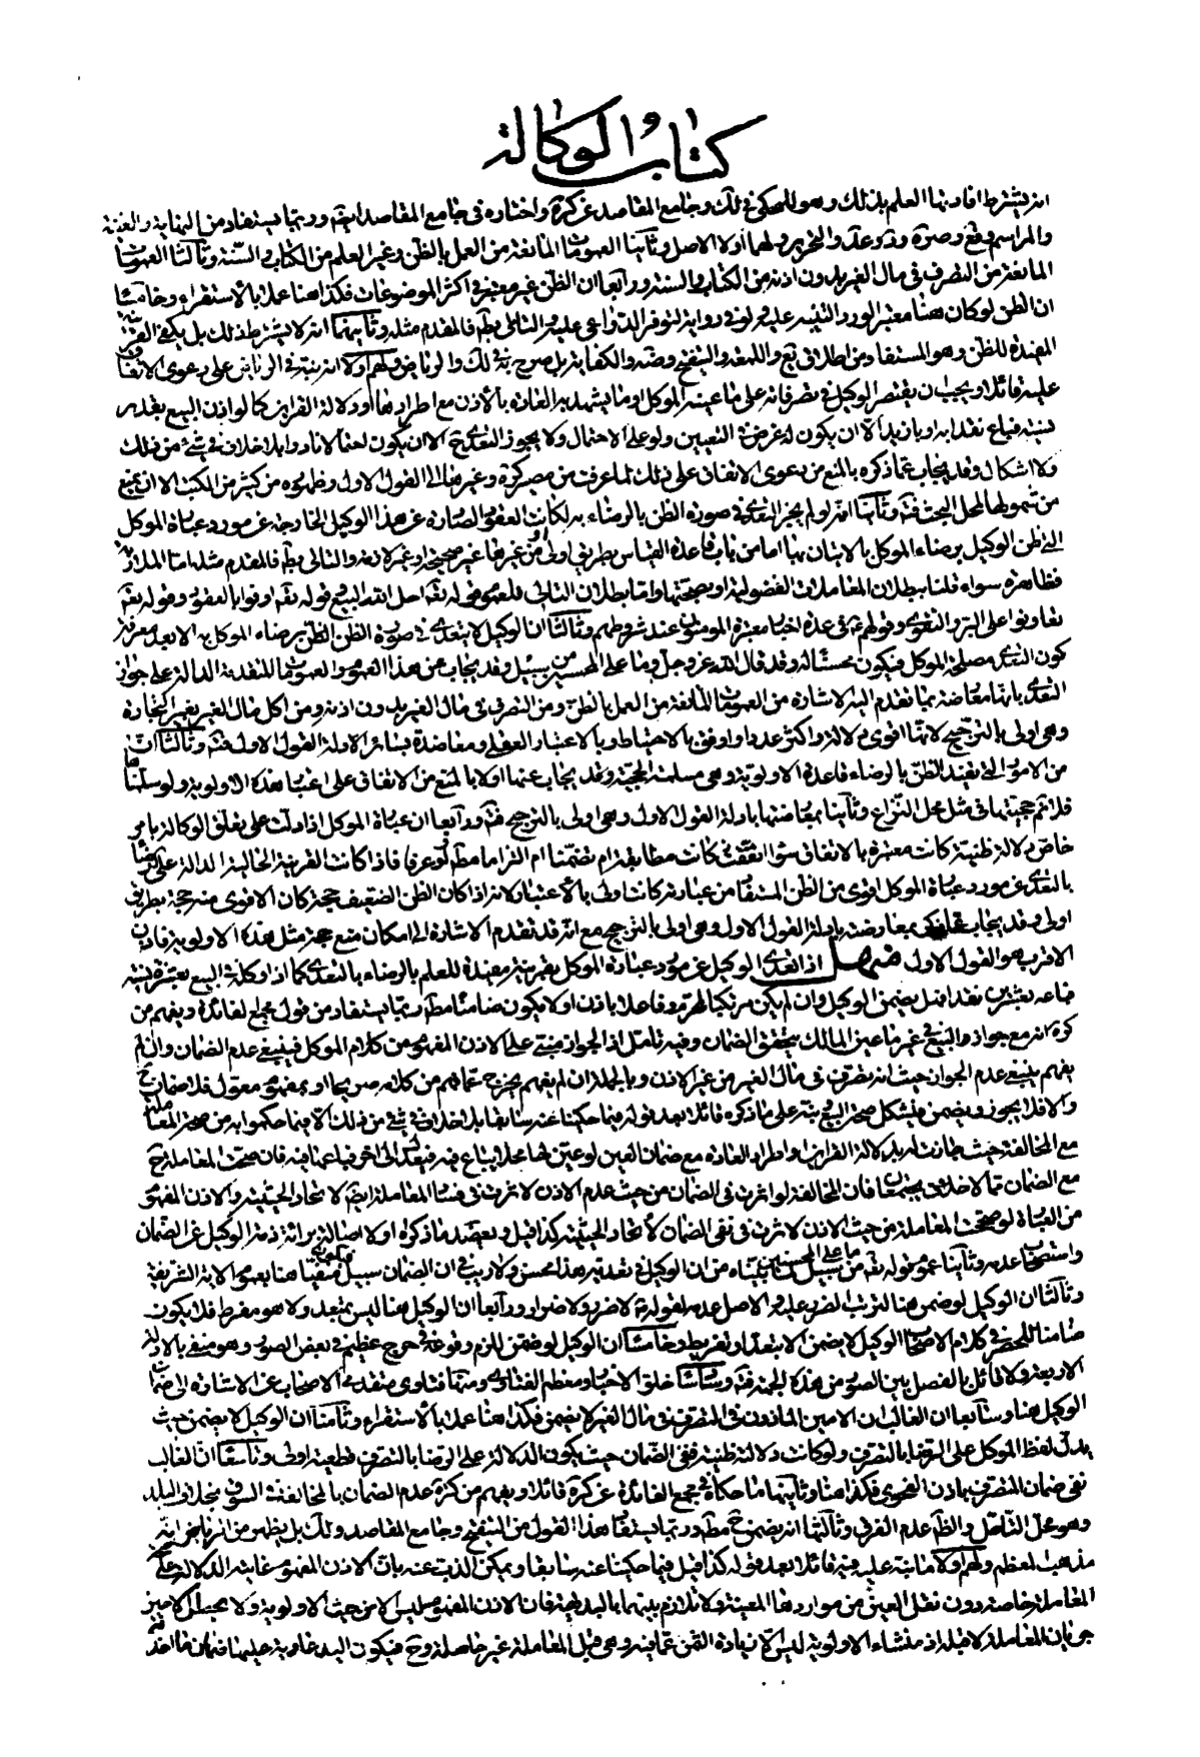 كتاب الوكالة
انه يشترط افادتها العلم بذلك وهو المحكى فى لك وجامع المقاصد عن كرة واختاره فى جامع المقاصد ايضا وربما يستفاد من النهاية والغنية
والمراسم وقع وصرة ود وعد والتحرير ولهما اولا الاصل وثانيا العمومات المانعة من العمل بالظن وغير العلم من الكتاب والسنة وثالثا العمومات
المانعة من التصرف فى مال الغير بدون اذنه من الكتاب والسنة ورابعا ان الظن غير معتبر فى اكثر الموضوعات فكذا هنا عملا بالاستقراء وخامسا
ان الظن لو كان هنا معتبرا لورد التنبيه عليه ولو فى رواية لتوفر الدواعى عليه والتالى بط فالمقدم مثله وثانيهما انه لا يشترط ذلك بل يكفى
المفيدة للظن وهو المستفاد من اطلاق يع واللمعة والتنقيح وضه والكفاية بل صرح به فى لك والرياض ولهم اولا انه نبه فى الرياض على دعوى الاتفاق
عليه قائلا ويجب ان يقتصر الوكيل فى تصرفاته على ما عينه الموكل او ما يشهد به العادة بالاذن مع اطرادها او دلالة القراين كما لو اذن البيع بقدر
نسية فباع نقدا به وبازيد الا ان يكون له غرض فى التعيين ولو على الاحتمال ولا يجوز التعدى ح الا ان يكون احتمالا نادرا بلا خلاف فى شئ من ذلك
ولا اشكال وقد يجاب عما ذكره بالمنع من دعوى الاتفاق على ذلك لما عرفت من مصير كرة وغيرها الى القول الاول وظهوره من كثير من الكتب الا ان يمنع
من شمولها لمحل البحث فته وثانيا انه لو لم يجز التعدى فى صورة الظن بالرضاء به لكانت العقود الصادرة عن هذا الوكيل الخارجة عن مورد عبارة الموكل
التى ظن الوكيل برضاء الموكل بالاتيان بها اما من باب قاعدة القياس بطريق اولى او من غيرها غير صحيحة او غير لازمة والتالى بط فالمقدم مثله اما الملازمة
فظاهرة سواء قلنا ببطلان المعاملات الفضولية او بصحتها واما بطلان التالى فلعموم قوله تعه احل الله البيع وقوله تعه اوفوا بالعقود وقوله تعه
تعاونوا على البر والتقوى وقولهم ع فى عدة اخبار معتبرة المومنون عند شروطهم وثالثا ان الوكيل لا يتعدى فى صورة الظن برضاء الموكل به الا بعد معرفة
كون التعدى مصلحة للموكل فيكون محسنا له وقد قال الله عز وجل وما على المحسنين من سبيل وقد يجاب عن هذا العموم والعمومات المتقدمة الدالة على جواز
التعدى بانها معارضة بما تقدم اليه الاشارة من العمومات المانعة من العمل بالظن ومن التصرف فى مال الغير بدون اذنه ومن اكل مال الغير بغير التجارة
وهى اولى بالترجيح لانها اقوى دلالة واكثر عددا واوفق بالاحتياط وبالاعتبار العقلى ومعاضدة بسائر ادلة القول الاول فته وثالثا ان
من الامور التى تفيد الظن بالرضاء قاعدة الاولوية وهى مسلمة الحجية وقد يجاب عنها اولا بالمنع من الاتفاق على اعتبار هذه الاولوية ولو سلمنا
فلا تم حجيتها فى مثل محل النزاع وثانيا بمعارضتها بادلة القول الاول وهى اولى بالترجيح فته ورابعا ان عبارة الموكل اذا دلت على تعلق الوكالة بامر
خاص دلالة ظنية كانت معتبرة بالاتفاق سواء تحققت كانت مطابقة ام تضمنا ام التزاما مط ولو عرفا فاذا كانت القرينة الحالية الدالة على
بالتعدى عن مورد عبارة الموكل اقوى من الظن المستفاد من عبارته كانت اولى بالاعتبار لانه اذا كان الظن الضعيف حجة كان الاقوى منه حجة بطريق
اولى وقد يجاب عما ذكر بمعارضته بادلة القول الاول وهى اولى بالترجيح مع انه قد تقدم الاشارة الى امكان منع حجية مثل هذه الاولوية فاذن
الاقرب هو القول الاول منهل اذا تعدى الوكيل عن مورد عبارة الموكل بقرينة مفيدة للعلم بالرضاء بالتعدى كما اذا وكله فى البيع بعشرة نسية
فباعه بعشرين نقدا فهل يضمن الوكيل وان لم يكن مرتكبا لمحرم وفاعلا باذن او لا يكون ضامنا مط ربما يستفاد من قول مجمع الفائدة ويفهم من
كرة انه مع جواز البيع فى غير ما عين المالك يتحقق الضمان وفيه تامل اذ الجواز مبنى على الاذن المفهوم من كلام الموكل فينبغى عدم الضمان وان لم
يفهم ينبغى عدم الجواز حيث انه تصرف فى مال الغير من غير الاذن وبالجملة ان لم يفهم يخرج عما فهم من كلامه صريحا او بمفهوم معقول فلا ضمان ح
والا فلا يجوز ويضمن فيشكل صحة البيع نبه على ما ذكره قائلا بعد قوله فيما حكينا عنه سابقا بلا خلاف فى شئ من ذلك الا فيما حكموا به من صحة المعاملة
مع المخالفة حيث جازت له بدلالة القراين واطراد العادة مع ضمان العين لو عين لها محلا يباع فيه فيتعدى الى اخر فباعها فيه فان صحة المعاملة ح
مع الضمان مما لا يجتمعان فان المخالفة لو اثرت فى الضمان من حيث عدم الاذن لاثرت فى فساد المعاملة ايضا لاتحاد الحيثية والاذن المفهوم
من العبارة لو صحت المعاملة من حيث الاذن لاثرت فى نفى الضمان لاتحاد الحيثية كذا قيل ويعضد ما ذكراه اولا اصالة برائة ذمة الوكيل عن الضمان
واستصحاب عدمه وثانيا عموم قوله تعه ما على المحسنين من سبيل بناء من ان الوكيل فى تقديره هذا محسن ولا ريب فى ان الضمان سبيل فيكون منفيا هنا بعموم الاية الشريفة
وثالثا ان الوكيل لو ضمن هنا لترتب الضرر عليه والاصل عدمه لقوله ص لا ضرر ولا ضرار ورابعا ان الوكيل هنا ليس بمتعد ولا هو مفرط فلا يكون
ضامنا للحصر فى كلام الاصحاب الوكيل لا يضمن الا بتعد او تفريط وخامسا ان الوكيل لو ضمن للزم وقوعه فى حرج عظيم فى بعض الصور وهو منفى بالادلة
الاربعة ولا قائل بالفصل بين الصور من هذه الجهة فته وسادسا خلو الاخبار ومعظم الفتاوى ومنها فتاوى متقدمى الاصحاب عن الاشارة الى ضمان
الوكيل هنا وسابعا ان الغالب ان الامين الماذون فى التصرف فى مال الغير لا يضمن فكذا هنا عملا بالاستقراء وثامنا ان الوكيل لا يضمن حيث
يدل لفظ الموكل على الرضا بالتصرف ولو كانت دلالته ظنية فنفى الضمان حيث يكون الدلالة على الرضا بالتصرف قطعية اولى وتاسعا ان الغالب
نفى ضمان المتصرف باذن الفحوى فكذا هنا وثانيهما ما حكاه فى مجمع الفائدة عن كرة قائلا ويفهم من كرة عدم الضمان بالمخالفة فى السوق بخلاف البلد
وهو محل التامل والظ عدم الفرق وثالثها انه يضمن ح مط وربما يستفاد هذا القول من التنقيح وجامع المقاصد ولك بل يظهر من الرياض انه
مذهب المعظم ولهم اولا ما نبه عليه فيه قائلا بعد قوله كذا قيل فيما حكينا عنه سابقا ويمكن الذب عنه بان الاذن المفهوم غايته الدلالة على
المعاملة خاصة دون نقل العين من مواردها المعينة ولا تلازم بينهما بالبديهة فان الاذن المفهوم ليس الا من حيث الاولوية ولا يحصل الا حين
جريان المعاملة لا قبله اذ منشاء الاولوية ليس الا زيادة الثمن عما فيه وهى قبل المعاملة غير حاصلة وح فيكون اليد عادية عليها ضمان ما اخذ